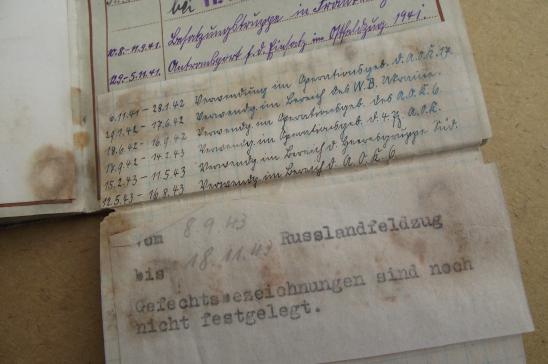 bei
10.8.-11.9.41. Besatzungstruppe in
29.9.-5.11.41. Antransport f.d. Einsatz im Ostfeldzug 1941.
6.11.41 - 28.1.42 Verwendung im Operationsgeb. d. A.O.K. 17.
29.1.42 - 17.6.42 Verwendg. im Bereich des W.B. Ukraine.
18.6.42 - 16.9.42 Verwendg. im Operationsgeb. des A.O.K. 6.
17.9.42 - 14.2.43 Verwendg. im Operationsgeb. d. 4. Pz. A.O.K.
15.2.43 - 11.5.43 Verwendg. im Bereich d. Heeresgruppe Süd.
12.5.43 - 16.8.43 Verwendg. im Bereich d. A.O.K. 6
vom 8.9.43 Russlandfeldzug
bis 18.11.43
Gefechtsbezeichnungen sind noch
nicht festgelegt.